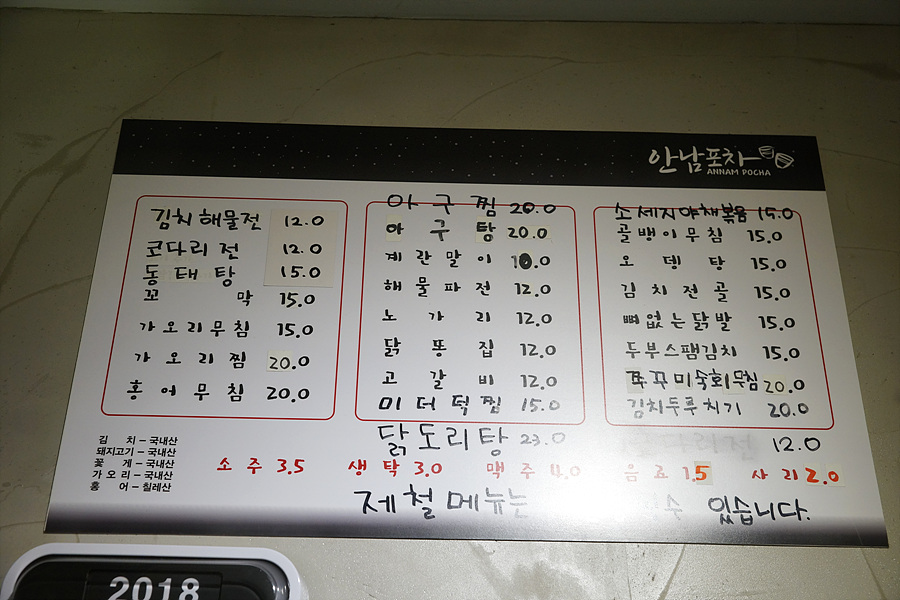 안남포차
ANNAM POCHA
김치해물전 12.0
코다리전 12.0
동태탕 15.0
꼬막 15.0
가오리무침 15.0
가오리찜 20.0
홍어무침 20.0
아구찜 20.0
아구탕 20.0
계란말이 10.0
해물파전 12.0
노가리 12.0
닭똥집 12.0
고갈비 12.0
미더덕찜 15.0
닭도리탕 23.0
소세지야채볶음 15.0
골뱅이무침 15.0
오뎅탕 15.0
김치전골 15.0
뼈없는닭발 15.0
두부스팸김치 15.0
쭈꾸미숙회무침 20.0
김치두루치기 20.0
12.0
김 치 – 국내산
돼지고기 – 국내산
꽃 게 – 국내산
가오리 – 국내산
홍 어 – 칠레산
소주 3.5 생탁 3.0 맥주 4.0 음료 1.5 사리 2.0
제철메뉴는 수 있습니다.
2018